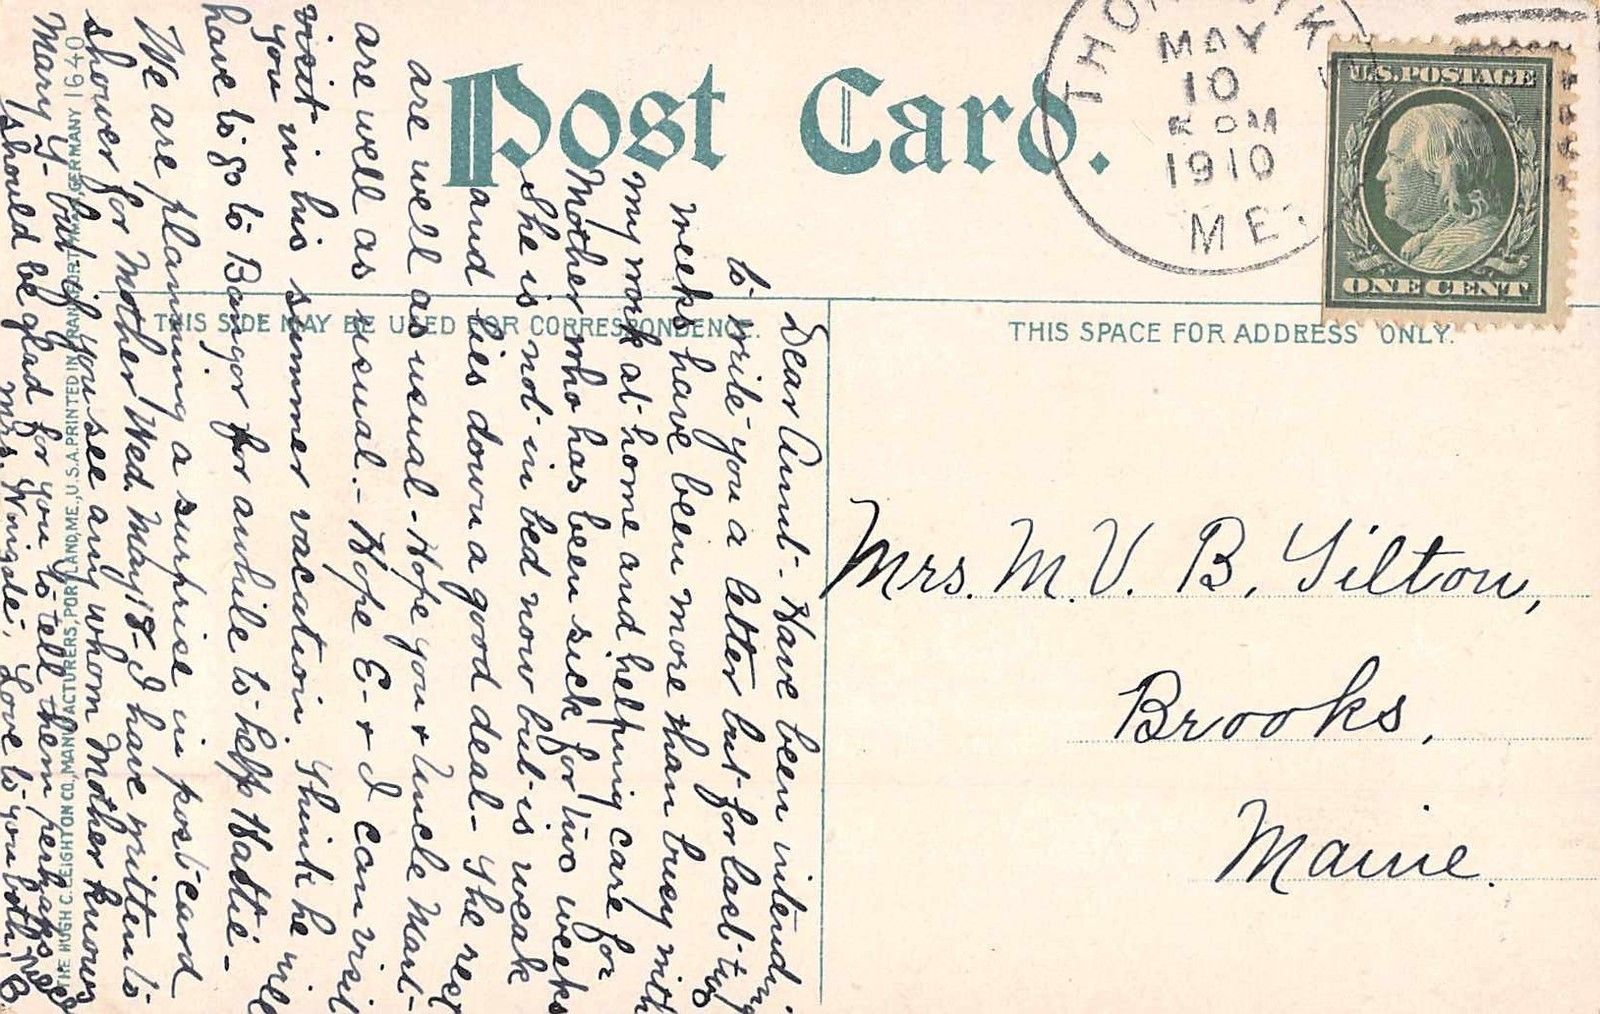 Post Card.
THORNDIKE
MAY
10
PM
1910
ME.
U.S. POSTAGE
ONE CENT
THIS SIDE MAY BE USED FOR CORRESPONDENCE.
THIS SPACE FOR ADDRESS ONLY.
Mrs. M. V. B. Tilton,
Brooks,
Maine.
Dear Aunt- Have been intending
to write you a letter but for last two
weeks have been more than busy with
my work at home and helping care for
Mother who has been sick for two weeks
She is not in bed now but is weak
and lies down a good deal- The rest
are well as usual- Hope you & Uncle Mart-
are well as usual.- Hope E- & I can visit
you in his summer vacation. Think he will
visit
have to go to Bangor for awhile to help Hattie-
We are planning a surprise in post card
shower for Mother Wed. May 18- I have written to
Mary Y- but if you see any whom Mother knows
should be glad for you to tell them perhaps
Mrs. Love to you both. B.
THE HUGH C. LEIGHTON CO., MANUFACTURERS, PORTLAND, ME., U.S.A. PRINTED IN FRANKFORT, GERMANY 1640